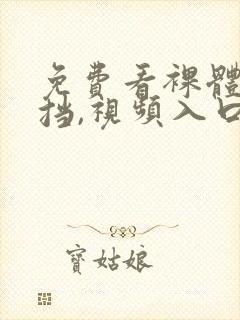 免費看裸體
挡,視頻入口
寶姑娘